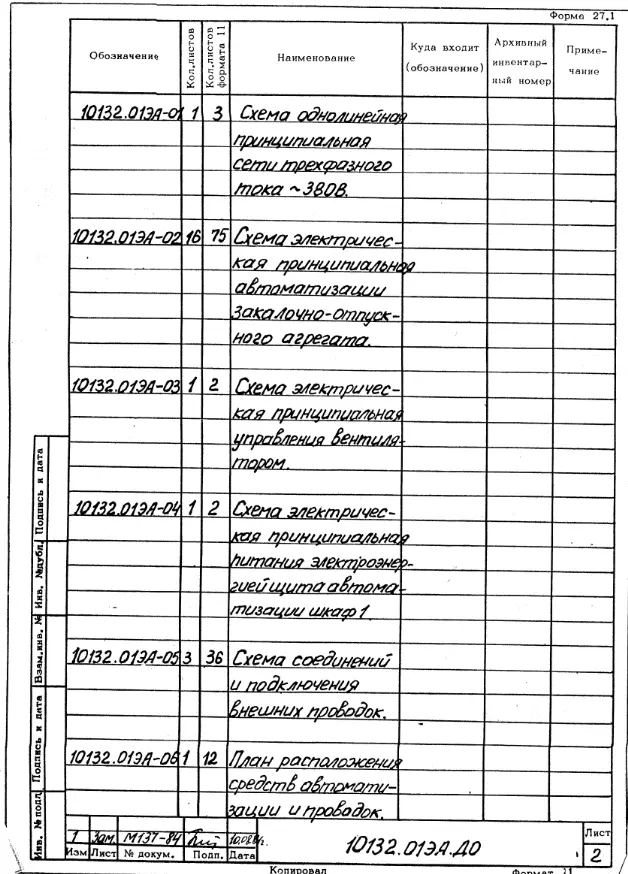 Форма 27.1
Обозначение Кол.листов Кол.листов формата 11 Наименование Куда входит (обозначение) Архивный инвентарный номер Примечание
10132.01ЭА-01 1 3 Схема однолинейная
принципиальная
сети трехфазного
тока ~380В.
10132.01ЭА-02 16 75 Схема электричес-
кая принципиальная
автоматизации
закалочно-отпуск-
ного агрегата.
10132.01ЭА-03 1 2 Схема электричес-
кая принципиальная
управления вентиля-
тором.
10132.01ЭА-04 1 2 Схема электричес-
кая принципиальная
питания электроэнер-
гией щита автома-
тизации шкаф 1.
10132.01ЭА-05 3 36 Схема соединений
и подключения
внешних проводок.
10132.01ЭА-06 1 12 План расположения
средств автомати-
зации и проводок.
Инв. № подл. Подпись и дата Взам.инв. № Инв. №дубл. Подпись и дата
1 Зам. М137-84
Изм Лист № докум. Подп. Дата
10132.01ЭА.ДО
Лист
2
Копировал Формат 11